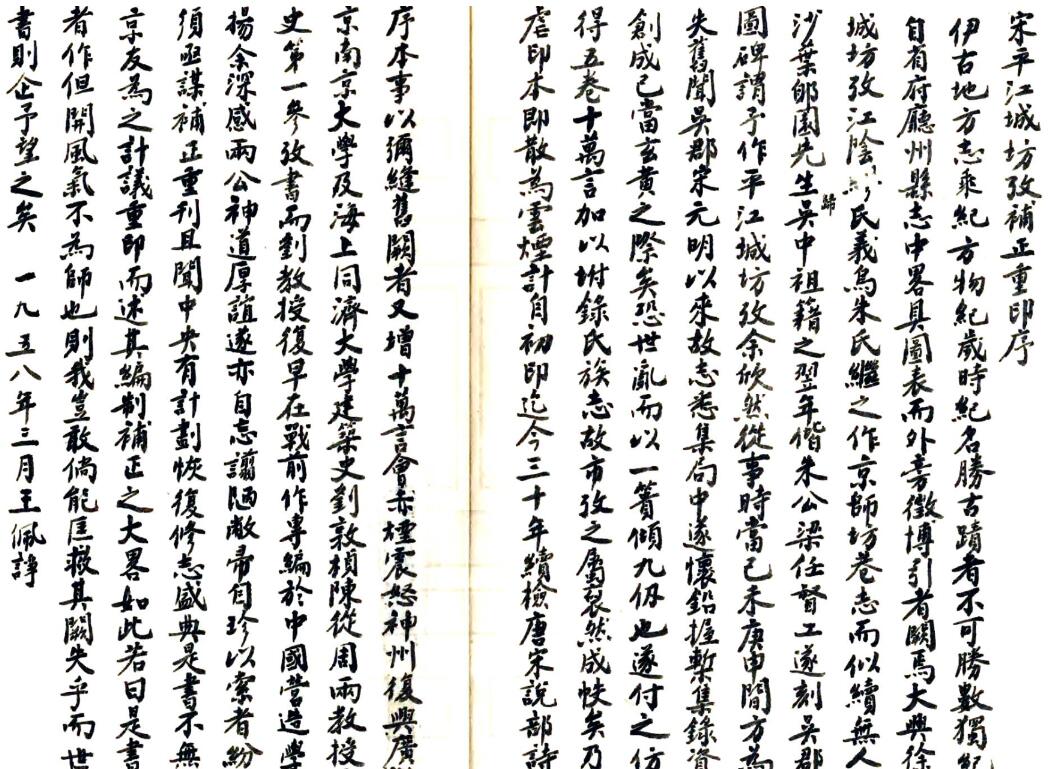 宋平江城坊攷補正重印序
伊古地方志乘紀方物紀歲時紀名勝古蹟者不可勝數獨紀
自有府廳州縣志中畧具圖表而外旁徵博引者闕焉大興徐
城坊攷江陰繆氏義烏朱氏繼之作京師坊巷志而似續無人
沙葉郋園先生歸吳中祖籍之翌年偕朱公梁任督工遂刻吳郡
圖碑謂予作平江城坊攷余欣然從事時當己未庚申間方為
失舊聞吳郡宋元明以來故志悉集局中遂懷鉛握槧集錄資
創成已當玄黃之際矣恐世亂而以一簣傾九仭也遂付之仿
得五卷十萬言加以坿錄氏族志故市攷之屬裒然成帙矣乃
虐印本即散為雲煙計自初印迄今三十年續檢唐宋說部詩
序本事以彌縫舊闕者又增十萬言會赤熛震怒神州復興廣
京南京大學及海上同濟大學建築史劉敦楨陳從周兩教授
史第一參攷書而劉教授復早在戰前作專編於中國營造學
揚余深感兩公神道厚誼遂亦自忘譾陋敝帚自珍以索者紛
須亟謀補正重刊且聞中央有計劃恢復修志盛典是書不無
京友為之計議重印而述其編制補正之大畧如此若曰是書
者作但開風氣不為師也則我豈敢倘能匡救其闕失乎而世
書則企予望之矣　一九五八年三月王佩諍